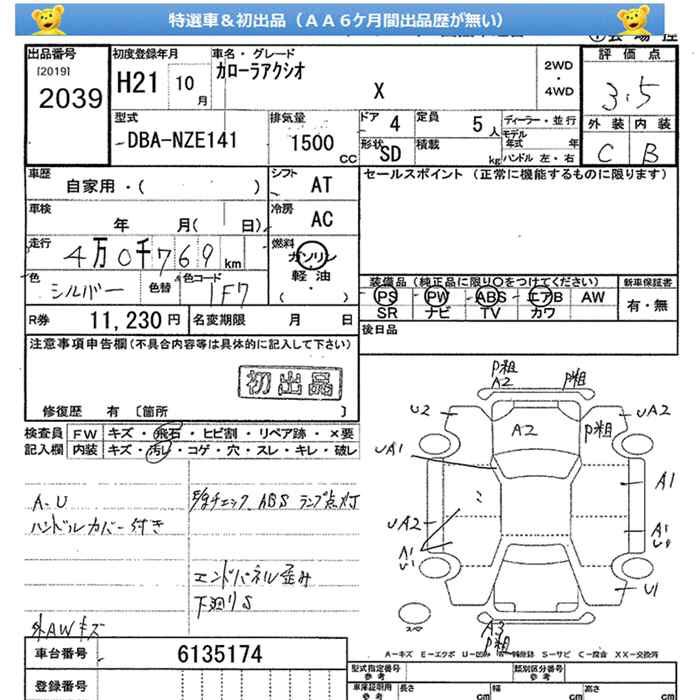 特選車＆初出品（ＡＡ６ケ月間出品歴が無い）
出品番号
[2019]
2039
初度登録年月
H21 10月
車名・グレード
カローラアクシオ
X
2WD
・
4WD
評価点
3.5
外装 内装
C B
型式
DBA-NZE141
排気量
1500 CC
ドア 4
定員 5人
ディーラー・並行
モデル年式 年
形状 SD
積載 kg
ハンドル 左・右
車歴
自家用・( )
シフト AT
セールスポイント（正常に機能するものに限ります）
車検
年 月( 日)
冷房 AC
走行
4万0千769km
燃料
ガソリン
軽・油
・( )
色
シルバー
色替
色コード
1F7
装備品（純正品に限り○をつけてください）
新車保証書
PS PW ABS エアB AW
有・無
SR ナビ TV カワ
R券 11,230円
名変期限 月 日
後日品
注意事項申告欄(不具合内容等は具体的に記入して下さい)
初出品
修復歴 有〔箇所 〕
検査員記入欄
FW キズ・飛石・ヒビ割・リペア跡・×要
内装 キズ・汚レ・コゲ・穴・スレ・キレ・破レ
A-U
ハンドルカバー付き
チェック ABS ランプ点灯
エンドパネル歪み
下廻りS
外AWキズ
P粗
A2
P粗
U2
UA2
A2
P粗
UA1
A1
UA2
A1
U1
A1
U1
スペア
A3
P粗
A－キズ E－エクボ U－凹み S－サビ C－腐食 XX－交換済
車台番号 6135174
登録番号
型式指定番号
参考
類別区分番号
参考
車庫証明用
参考
長さ cm
幅 cm
高さ cm